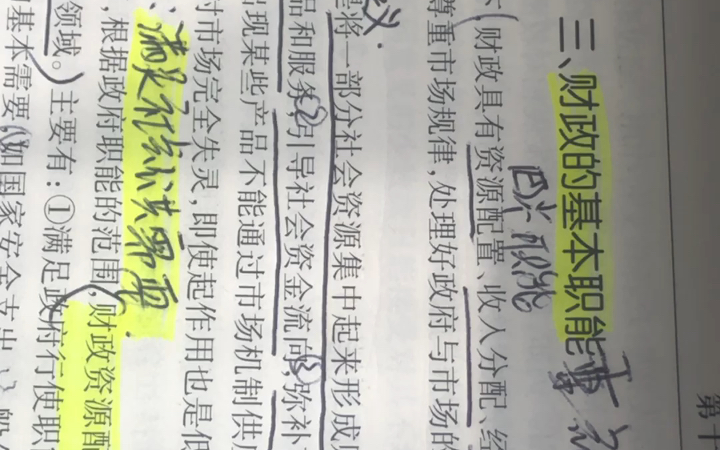 第十
三、财政的基本职能
四大职能
财政具有资源配置、收入分配、经
尊重市场规律,处理好政府与市场的
义.
是将一部分社会资源集中起来形成
品和服务,②引导社会资金流向,③弥补
出现某些产品不能通过市场机制供应
对市场完全失灵,即使起作用也是低
满足社会公共需要.
,根据政府职能的范围,财政资源配
领域。)主要有:①满足政府行使职
基本需要(如国家安全支出、